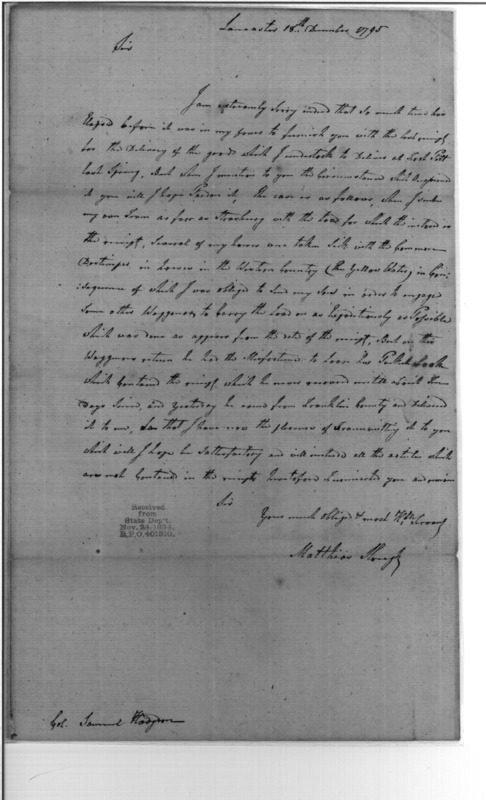 Lancaster 18th December 1795
Sir
I am extremely Sorry indeed that So much time has
Elapsed before it was in my power to furnish you with the receipt
for the Delivery of the goods which I undertook to Deliver at Fort Pitt
last Spring, But when I mention to you the Circumstance which
it you will I hope Pardon it, the case is as follows, when I sent
my own Team as far as Strasburg with the Load for which the
the receipt, Several of my horses were taken Sick with the Common
Distemper in horses in the Western Country (the Yellow Water) in Con-
Sequence of which I was obliged to Send my Son in order to engage
Some other Waggoner to Carry the Load on as Expeditiously as Possible
which was done as appears from the date of the receipt, But on this
Waggoners return he had the Misfortune to Loose his Pocket Book
which Contained the receipt which he never received untill about three
Days Since, and Yesterday he came from Franklin County and Delivered
it to me, So that I have now the pleasure of Transmitting it to you
which will I hope be Satisfactory and will include all the articles which
are not Contained in the receipts heretofore transmitted you and remain
Sir
Your much obliged & most Hble Servant
Matthias Slough
Received
from
State Dep't.
Nov. 24, 1894,
R.P.O. 401310.
Col. Samuel Hodgdon